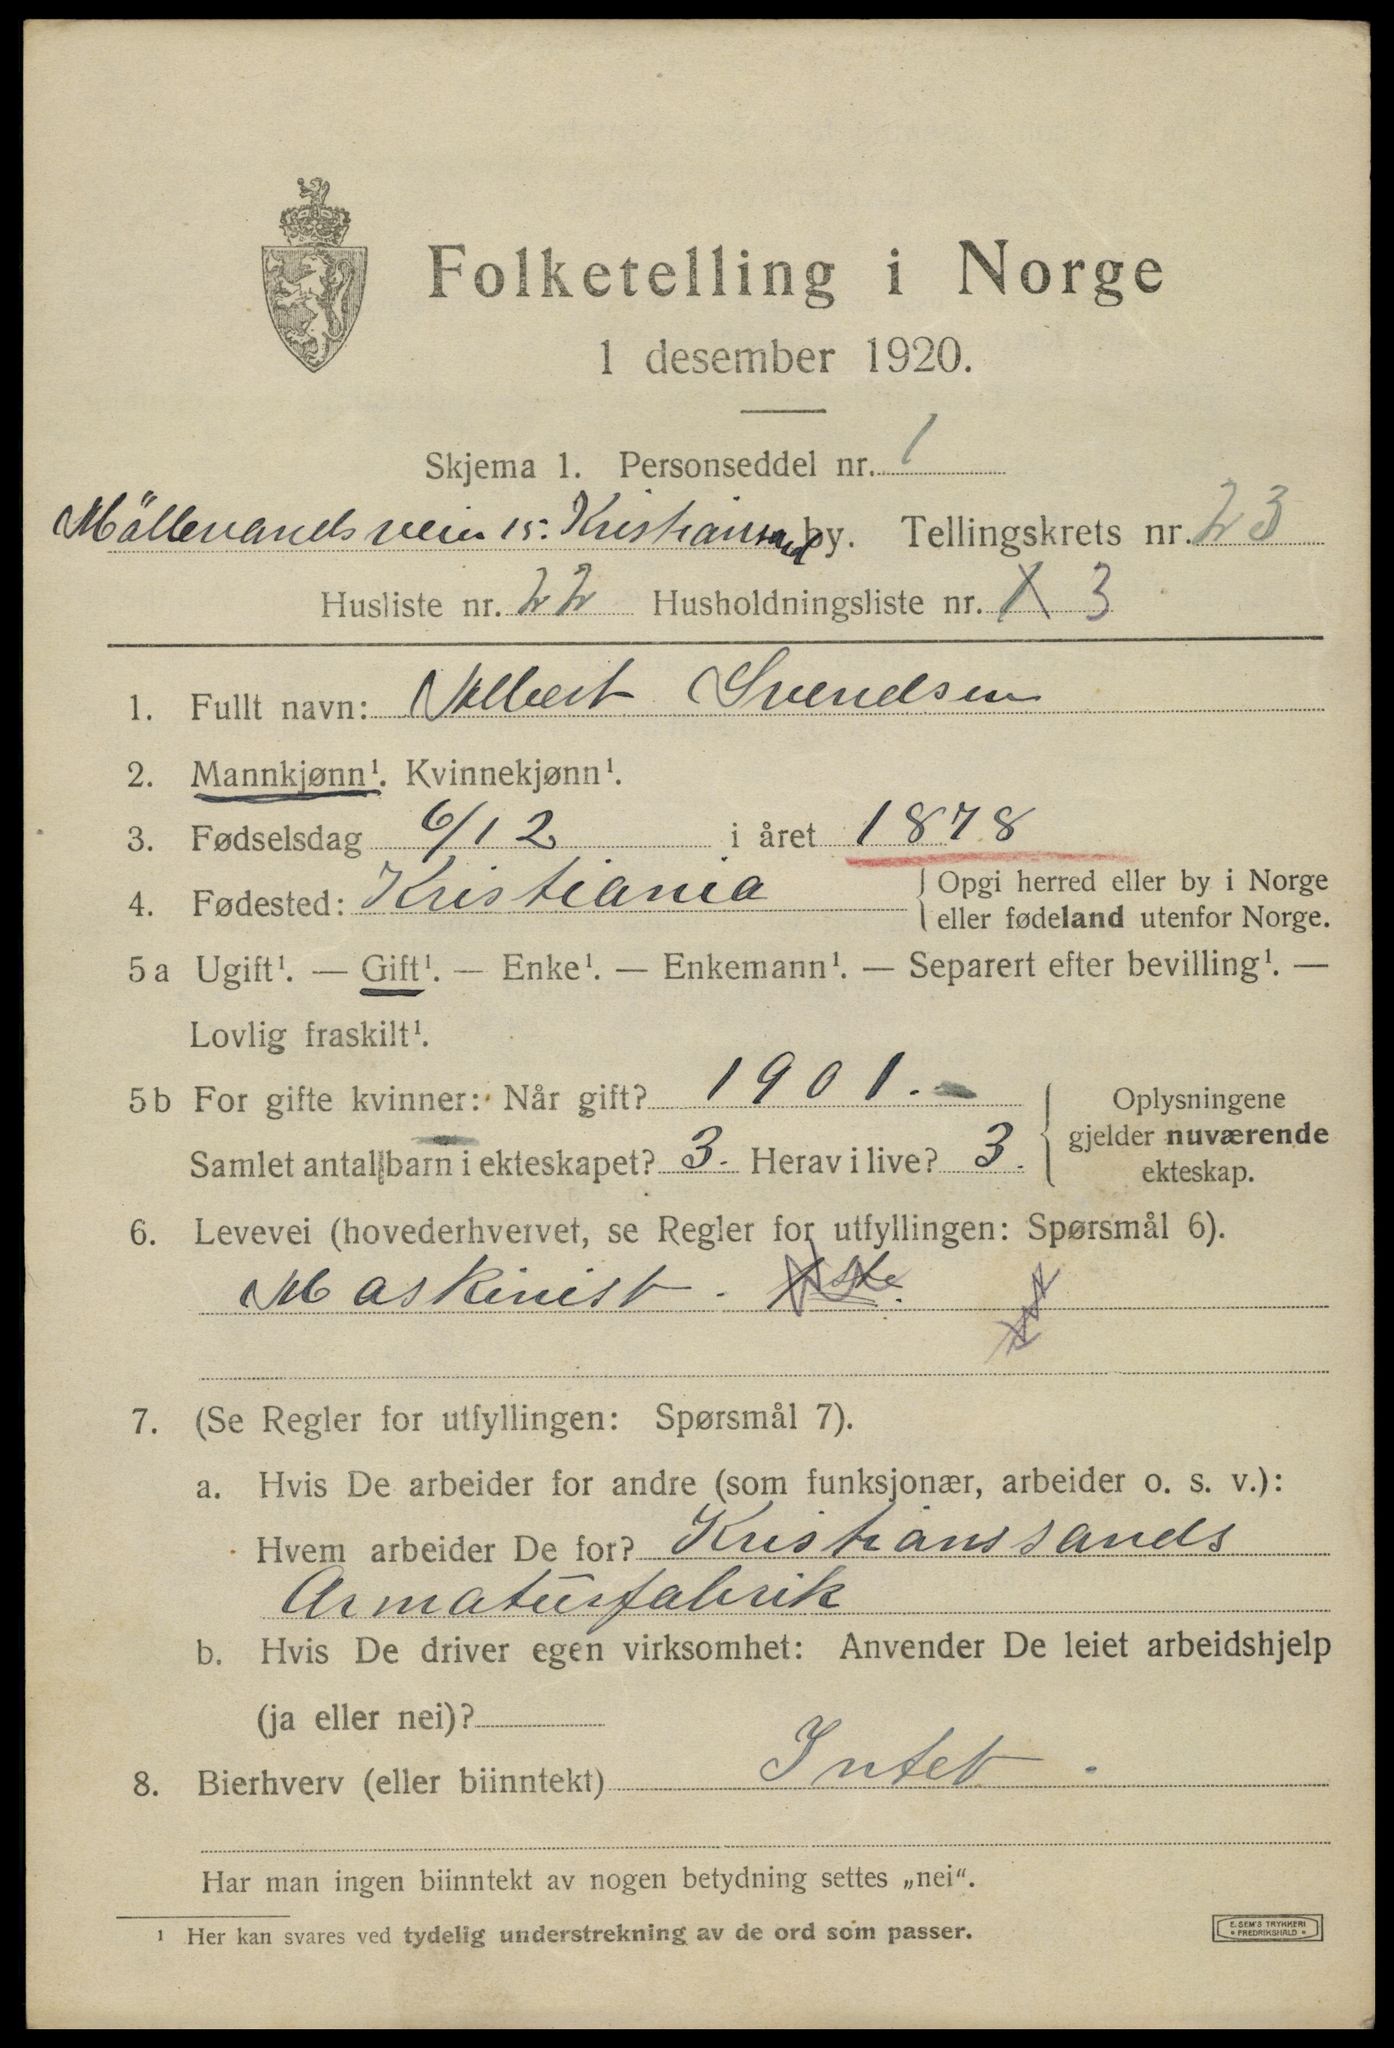 Folketelling i Norge
1 desember 1920.
Skjema 1. Personseddel nr. 1
Möllevandsveien 15. Kristianssand by. Tellingskrets nr. 23
Husliste nr. 22 Husholdningsliste nr. 1 3
1. Fullt navn: Albert Svendsen
2. Mannkjønn¹. Kvinnekjønn¹.
3. Fødselsdag 6/12 i året 1878
4. Fødested: Kristiania { Opgi herred eller by i Norge
eller fødeland utenfor Norge.
5 a Ugift¹. — Gift¹. — Enke¹. — Enkemann¹. — Separert efter bevilling¹. —
Lovlig fraskilt¹.
5 b For gifte kvinner: Når gift? 1901.
Samlet antall barn i ekteskapet? 3. Herav i live? 3.
Oplysningene
gjelder nuværende
ekteskap.
6. Levevei (hovederhvervet, se Regler for utfyllingen: Spørsmål 6).
Maskinist.
7. (Se Regler for utfyllingen: Spørsmål 7).
a. Hvis De arbeider for andre (som funksjonær, arbeider o. s. v.):
Hvem arbeider De for? Kristianssands
Armaturfabrik
b. Hvis De driver egen virksomhet: Anvender De leiet arbeidshjelp
(ja eller nei)?
8. Bierhverv (eller biinntekt) Intet.
Har man ingen biinntekt av nogen betydning settes „nei“.
¹ Her kan svares ved tydelig understrekning av de ord som passer.
E. SEM'S TRYKKERI
FREDRIKSHALD